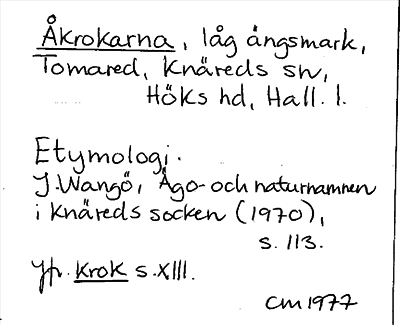 Åkrokarna, låg ängsmark,
Tomared, Knäreds sn,
Höks hd, Hall. l.
Etymologi.
J. Wangö, Ägo- och naturnamnen
i Knäreds socken (1970),
s. 113.
Jfr. krok s. XIII.
CM 1977